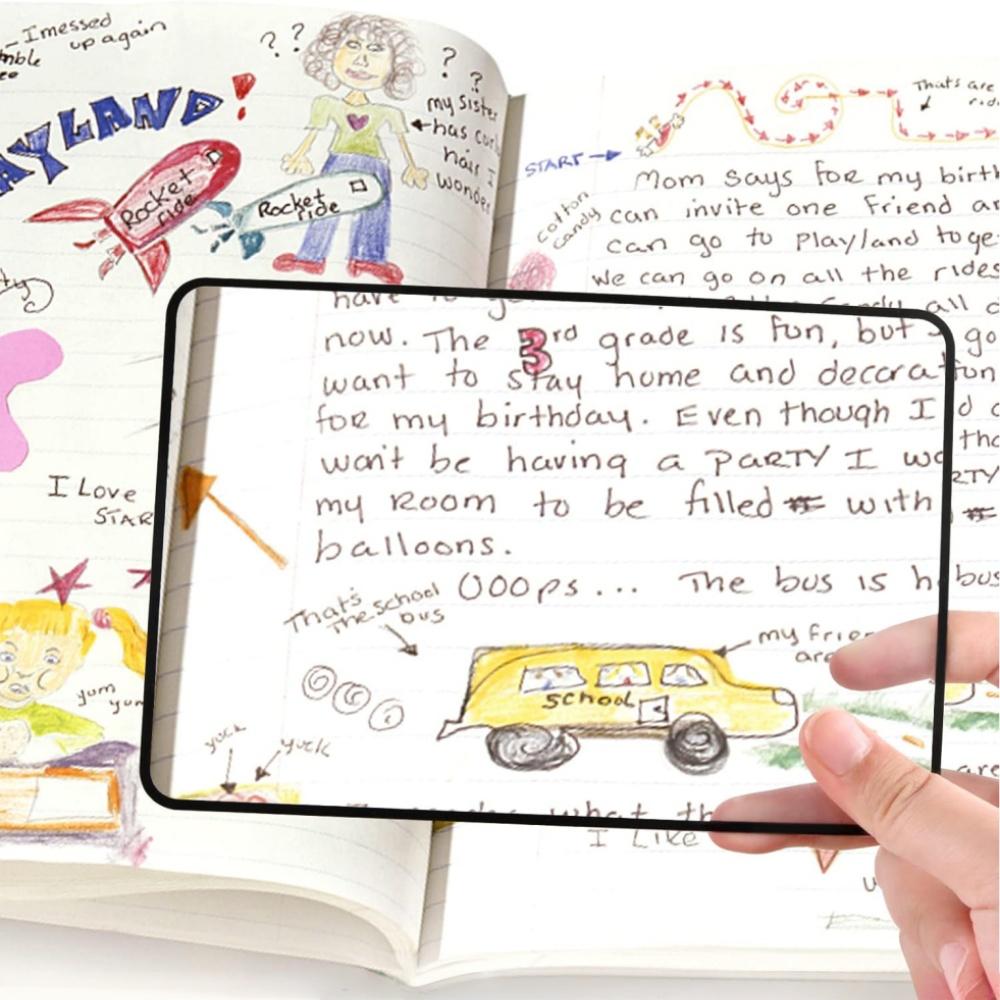 I messed
up again
AYLAND!
? ?
? ?
my sister
has
hair I
wonder
Rocket
ride
Rocket
ride
I Love
STAR
yum
yum
That's are
START
cotton
Candy
Mom says for my birth
can invite one friend
can go to Playland toge
we can go on all the rides
all
now. The 3rd grade is fun, but
want to stay home and decorat
for my birthday. Even though I
won't be having a PARTY I
my Room to be filled with
balloons.
OOOps... The bus is
That's
the school
bus
my frie
are
school
yuck
yuck
what
I Like